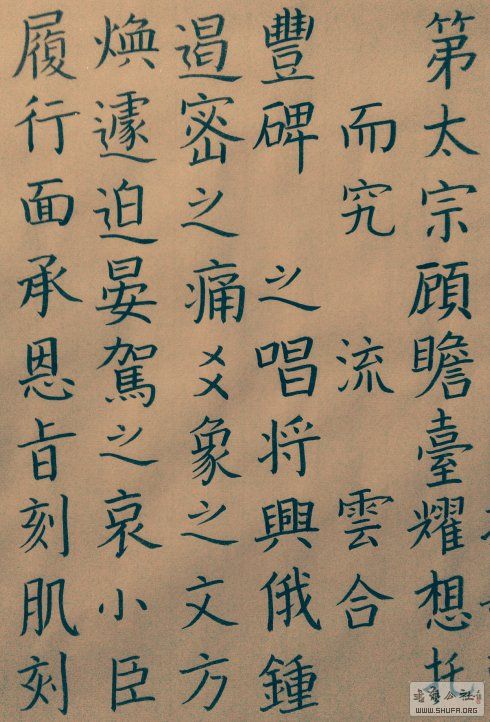 第太宗顧瞻臺耀想
而究流雲合
豐碑之唱将興俄鍾
遏密之痛爻象之文方
煥遽迫晏駕之哀小臣
履行面承恩旨刻肌刻
WWW.SHUFA.ORG